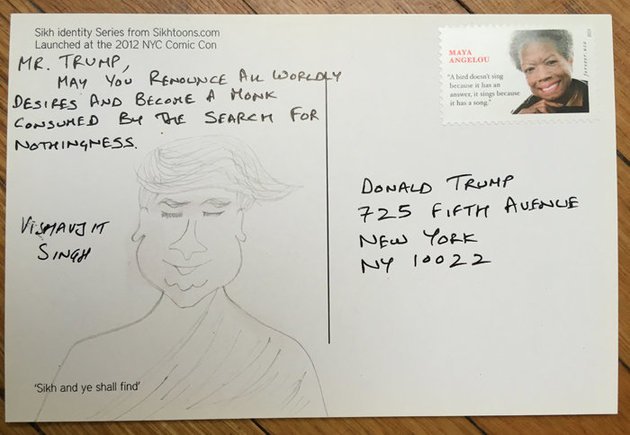 Sikh identity Series from Sikhtoons.com
Launched at the 2012 NYC Comic Con
MR. TRUMP,
MAY YOU RENOUNCE ALL WORLDLY
DESIRES AND BECOME A MONK
CONSUMED BY THE SEARCH FOR
NOTHINGNESS.
VISHAVJIT
SINGH
'Sikh and ye shall find'
MAYA
ANGELOU
"A bird doesn't sing
because it has an
answer, it sings because
it has a song."
FOREVER USA
DONALD TRUMP
725 FIFTH AVENUE
NEW YORK
NY 10022